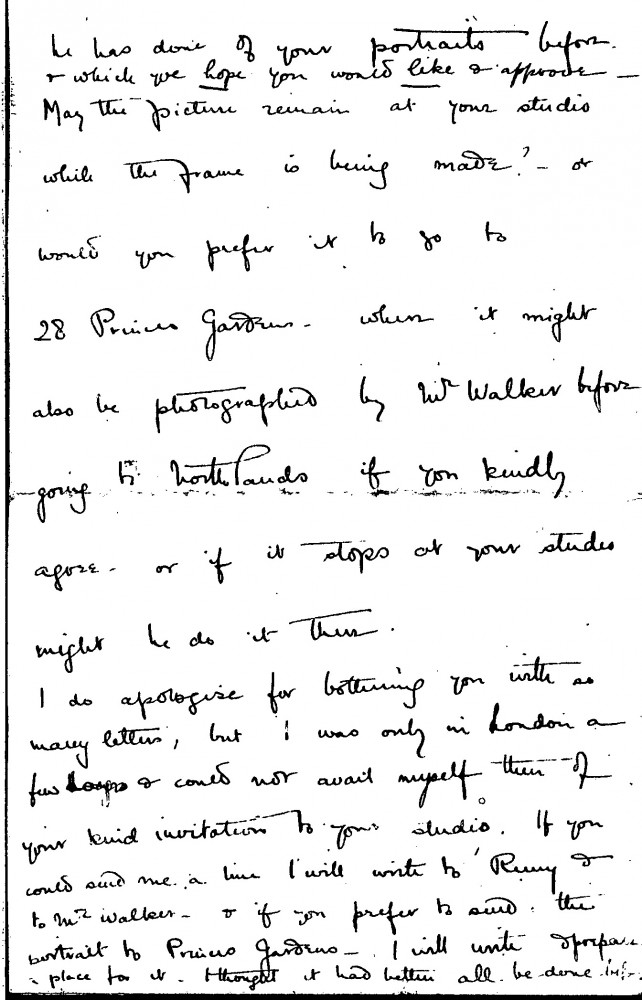 he has done of your portraits before.
& which we hope you would like & approve —
May the picture remain at your studio
while the frame is being made? – or
would you prefer it to go to
28 Princes Gardens – where it might
also be photographed by Mr Walker before
going to Northlands if you kindly
agree – or if it stops at your studio
might he do it there.
I do apologise for bothering you with so
many letters, but I was only in London a
few & could not avail myself then of
your kind invitation to your studio. If you
could send me a line I will write to Remy &
to Mr Walker – & if you prefer to send the
portrait to Princes Gardens – I will write & prepare
a place for it – I thought it had better all be done